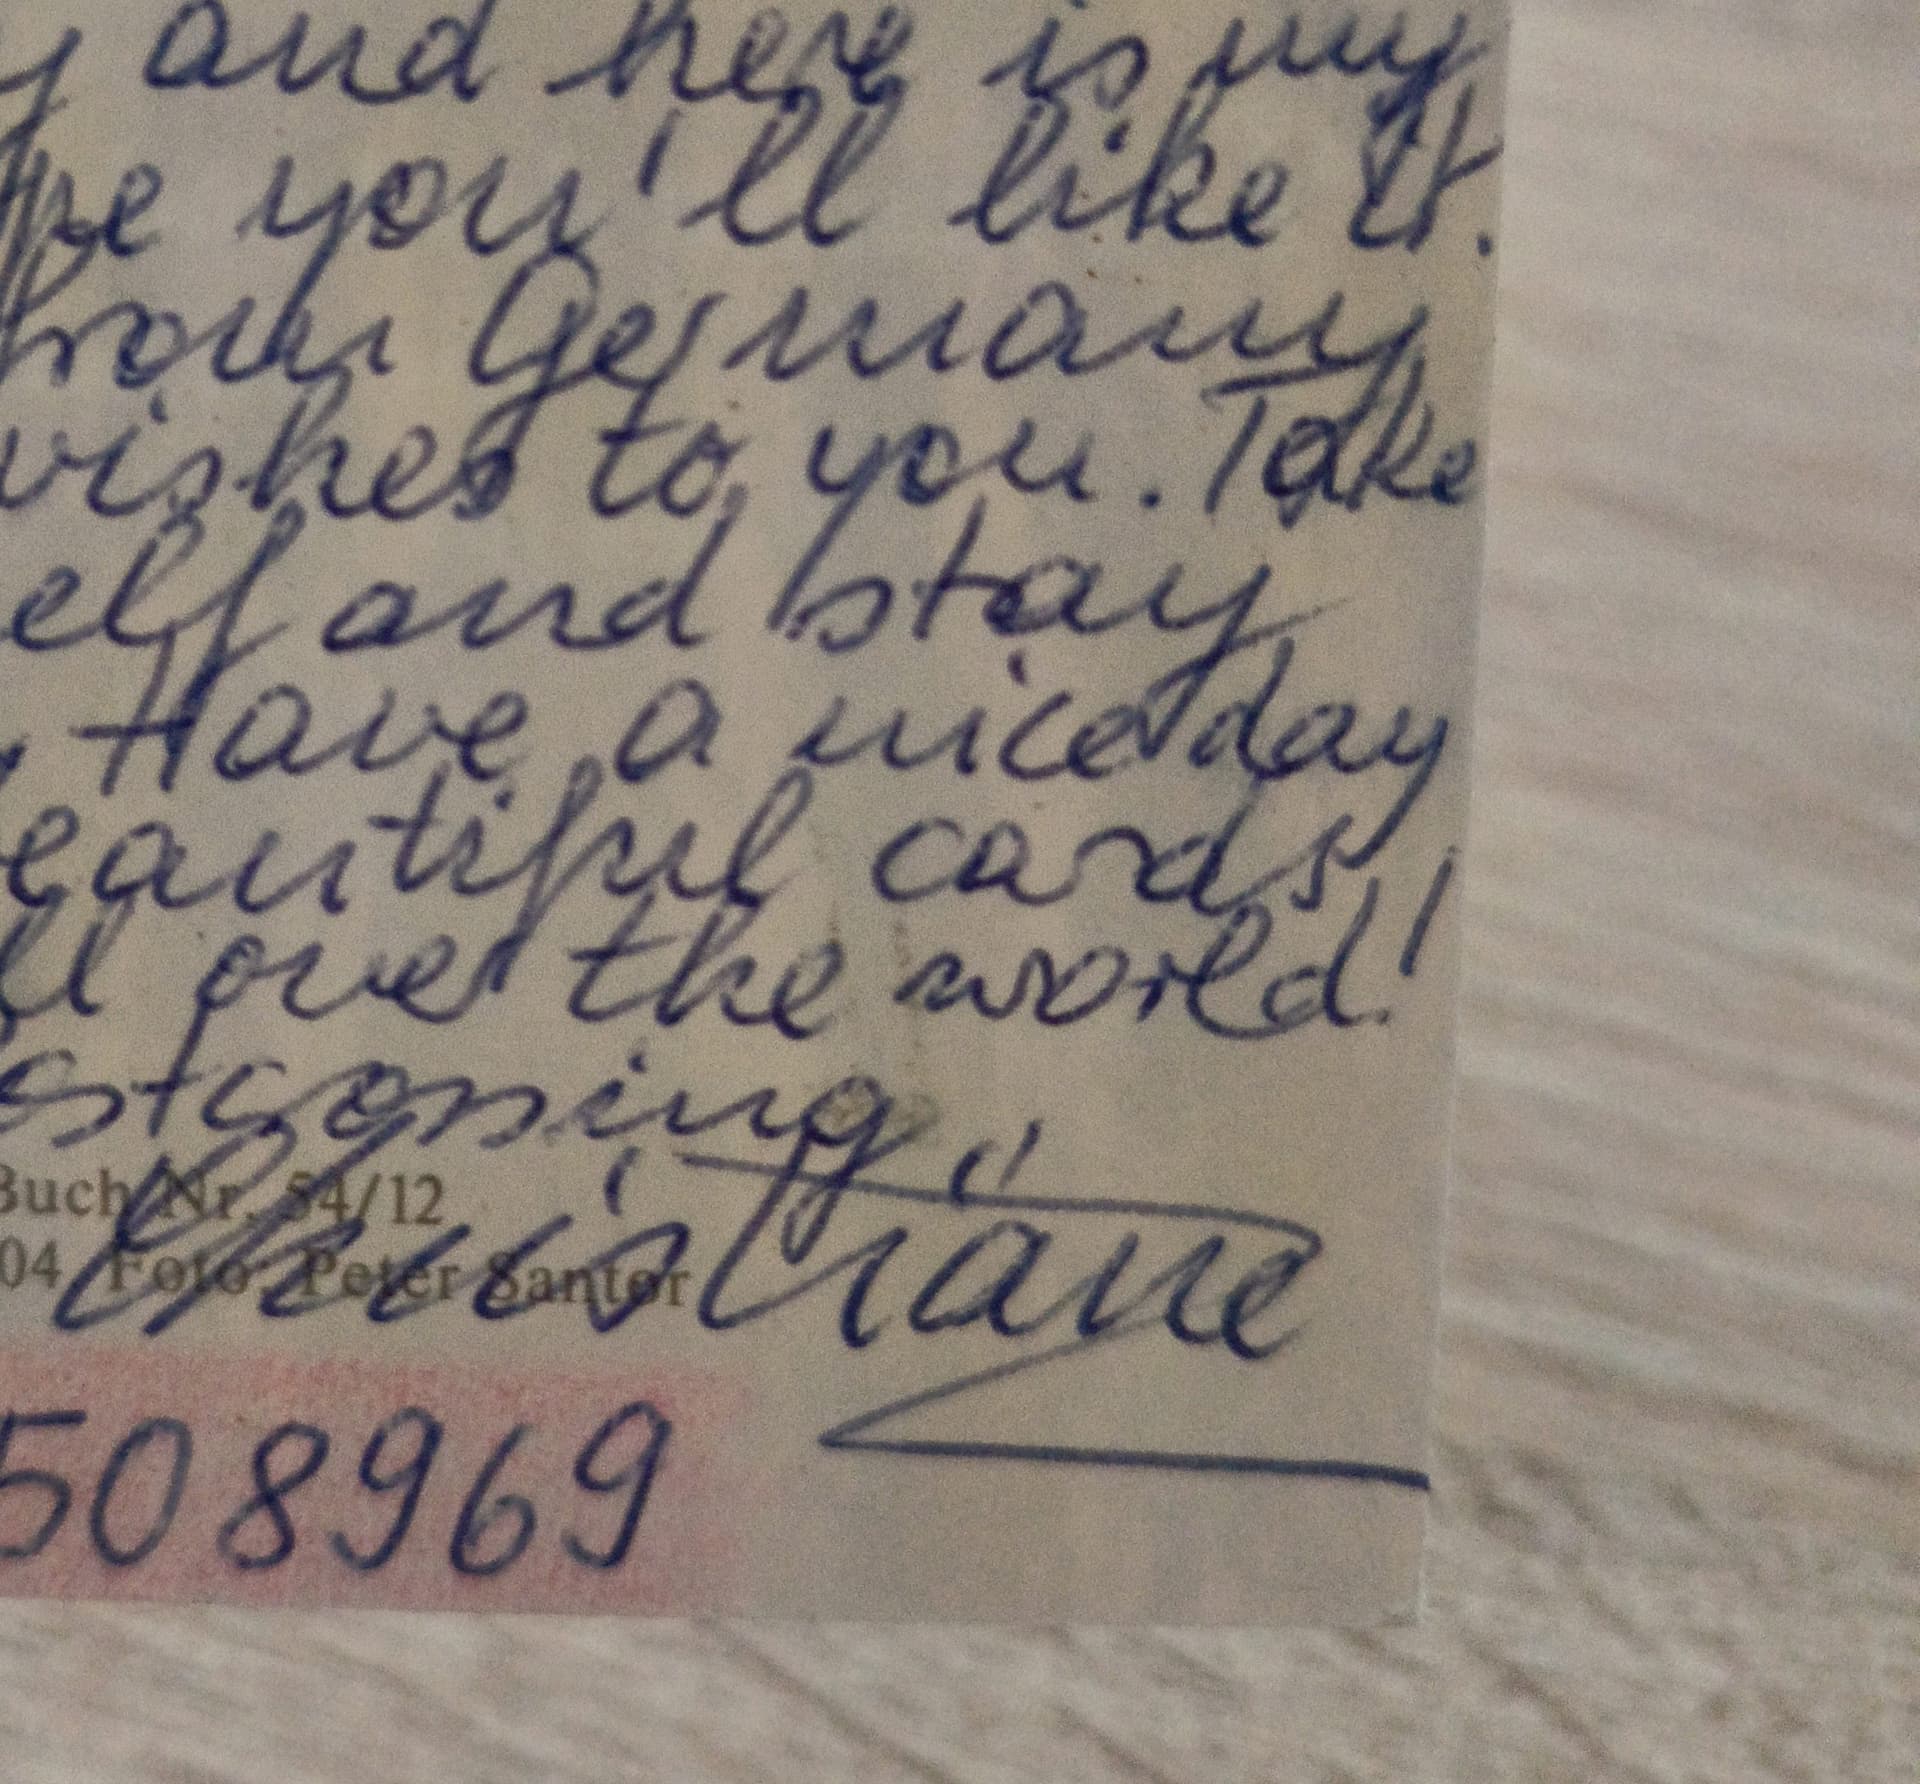 y and here is my
pe you'll like it.
from Germany
wishes to you. Take
elf and stay
. Have a nice day
eautiful cards
ll over the world!
ostcrossing,
Christiane
Buch Nr. 54/12
04 Foto: Peter Santor
508969